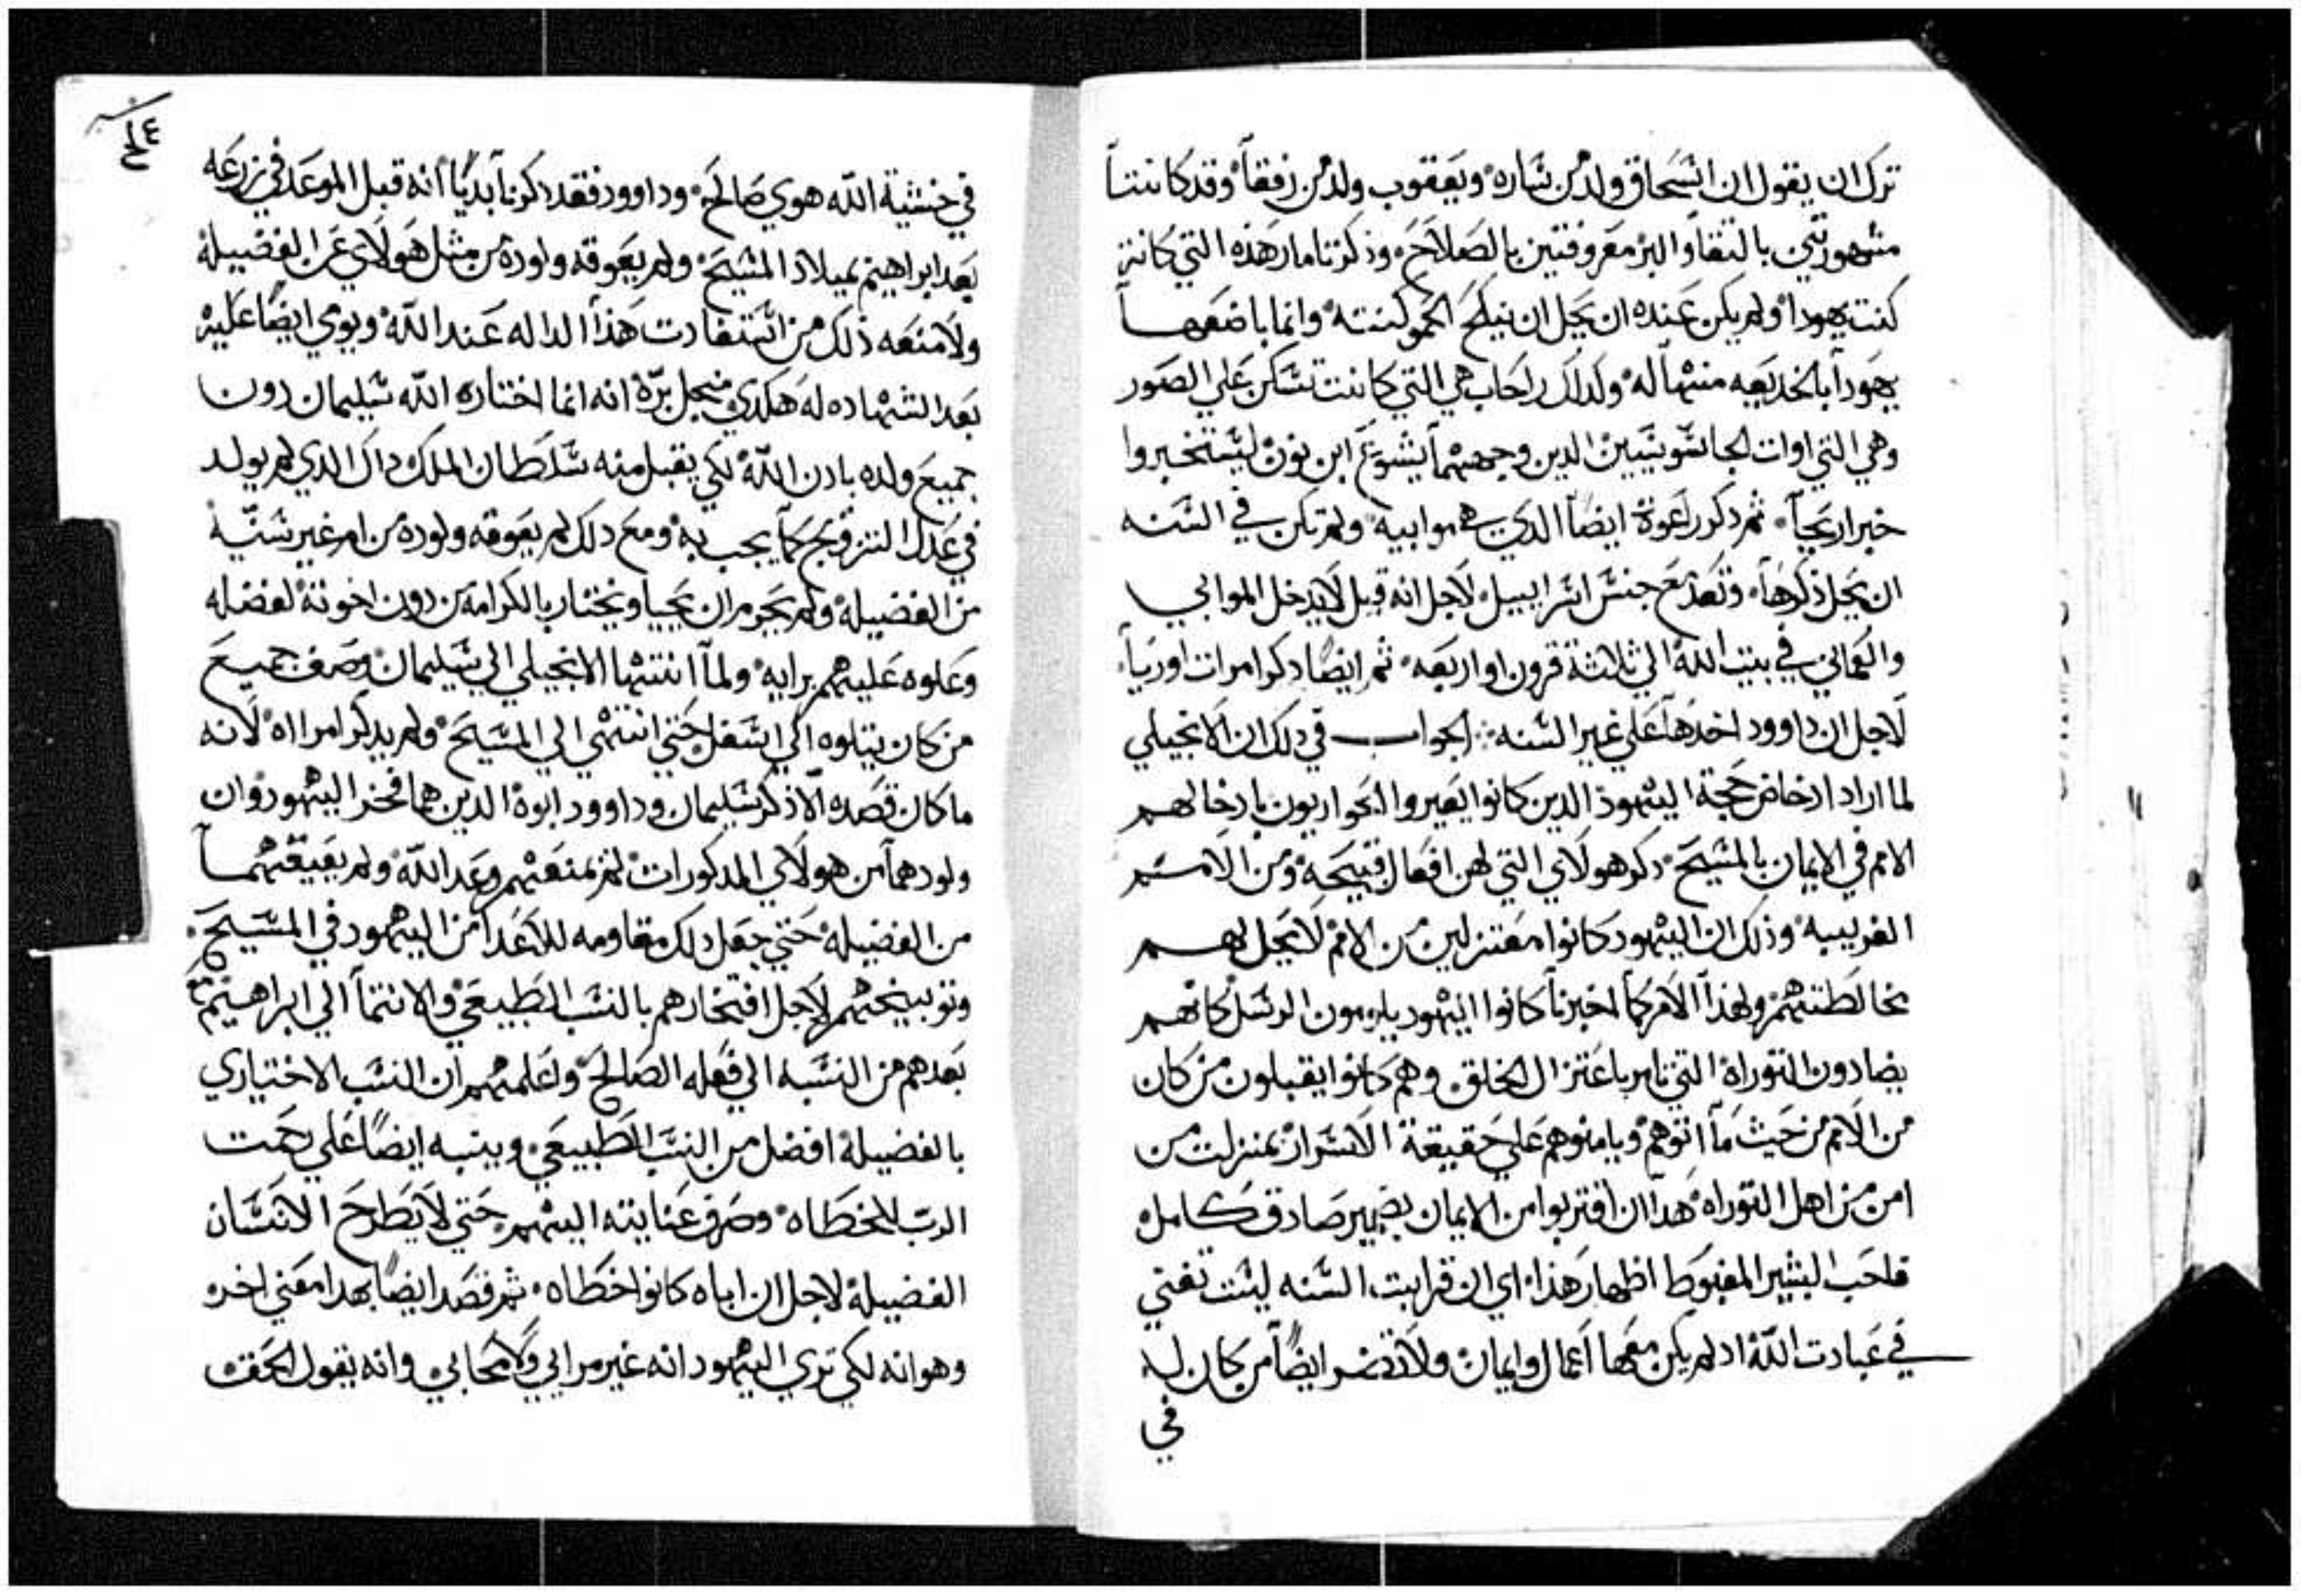 ترك ان يقول ان اسحاق ولد من ساره ويعقوب ولد من رفقا وقد كانتا
مشهورتين بالتقا والبر معروفتين بالصلاح وذكر تامار هذه التي كانت
كنت يهودا ولم يكن عنده ان يحل ان ينكح الحمو كنته وانما باضعها
يهودا بالخديعه منها له وكداك راحاب هي التي كانت تسكن علي الصور
وهي التي اوات الجاسوسين الدين وجههما يشوع ابن نون ليستخبروا
خبر اريحا ثم دكر راعوة ايضا الدي هي موابيه ولم تكن في السنه
ان يحل ذكرها وتعد مع جنس اسراييل لاجل انه قيل لا يدخل الموابي
والعماني في بيت الله الي ثلاثة قرون او اربعه ثم ايضا دكر امرات اوريا
لاجل ان داوود اخدها علي غير السنه الجواب في دلك ان الانجيلي
لما اراد ادحاض حجة اليهود الدين كانوا يعيروا الحواريون بادخالهم
الامم في الايمان بالمسيح دكر هولاي التي لهن افعال قبيحه ومن الامم
الغريبه وذلك ان اليهود كانوا معتزلين من الامم لا يحل لهم
مخالطتهم ولهذا الامر كما اخبرنا كانوا اليهود يلومون الرسل كانهم
يضادون التوراة التي تامر باعتزال الخلق وهم كانوا يقبلون من كان
من الامم من حيث ما اتوهم ويامنوهم علي حقيقة الاسرار بمنزلت من
امن من اهل التوراه هدا ان اقتربوا من الايمان بضمير صادق كامل
فاحب البشير المغبوط اظهار هذا اي ان قرابت السنه ليست تغني
في عبادت الله اد لم يكن معها اعمال وايمان ولا تضر ايضا من كان له
في
في خشية الله هوي صالح وداوود فقد دكرنا بديا انه قبل الموعد في زرعه
بعد ابراهيم بميلاد المسيح ولم يعوقه ولوده من مثل هولاي عن الفضيله
ولا منعه ذلك من استفادت هذا الداله عند الله ويوي ايضا عليه
بعد الشهاده له هكدي من جل بره انه انما اختاره الله سليمان دون
جميع ولده بادن الله لكي يقبل منه سلطان الملك داك الدي لم يولد
في عدل التزويج كما يجب به ومع دلك لم يعوقه ولوده من امر غير سنيه
من الفضيله ولم يحرم ان يحيا ويختار بالكرامه من دون اخوته لفضله
وعلوه عليهم برايه ولما انتها الانجيلي الي سليمان وصف جميع
من كان يتلوه الي اسفل حتي انتهي الي المسيح ولم يدكر امراه لانه
ما كان قصده الا ذكر سليمان وداوود ابوه الدين هما فخر اليهود وان
ولودهما من هولاي المدكورات لم يمنعهم وعد الله ولم يعيقهما
من الفضيله حتي جعل دلك مقاومه للاعدا من اليهود في المسيح
وتوبيخهم لاجل افتخارهم بالنسب الطبيعي والانتما الي ابراهيم مع
بعدهم من النسبه الي فعله الصالح واعلمهم ان النسب الاختياري
بالفضيله افضل من النسب الطبيعي وينبه ايضا علي رحمت
الرب للخطاه وصرف عنايته اليهم حتي لا يطرح الانسان
الفضيله لاجل ان اباه كانوا خطاه ثم قصد ايضا بهدا معني اخر
وهو انه لكي تري اليهود انه غير مرايي ولا محابي وانه يقول الحق